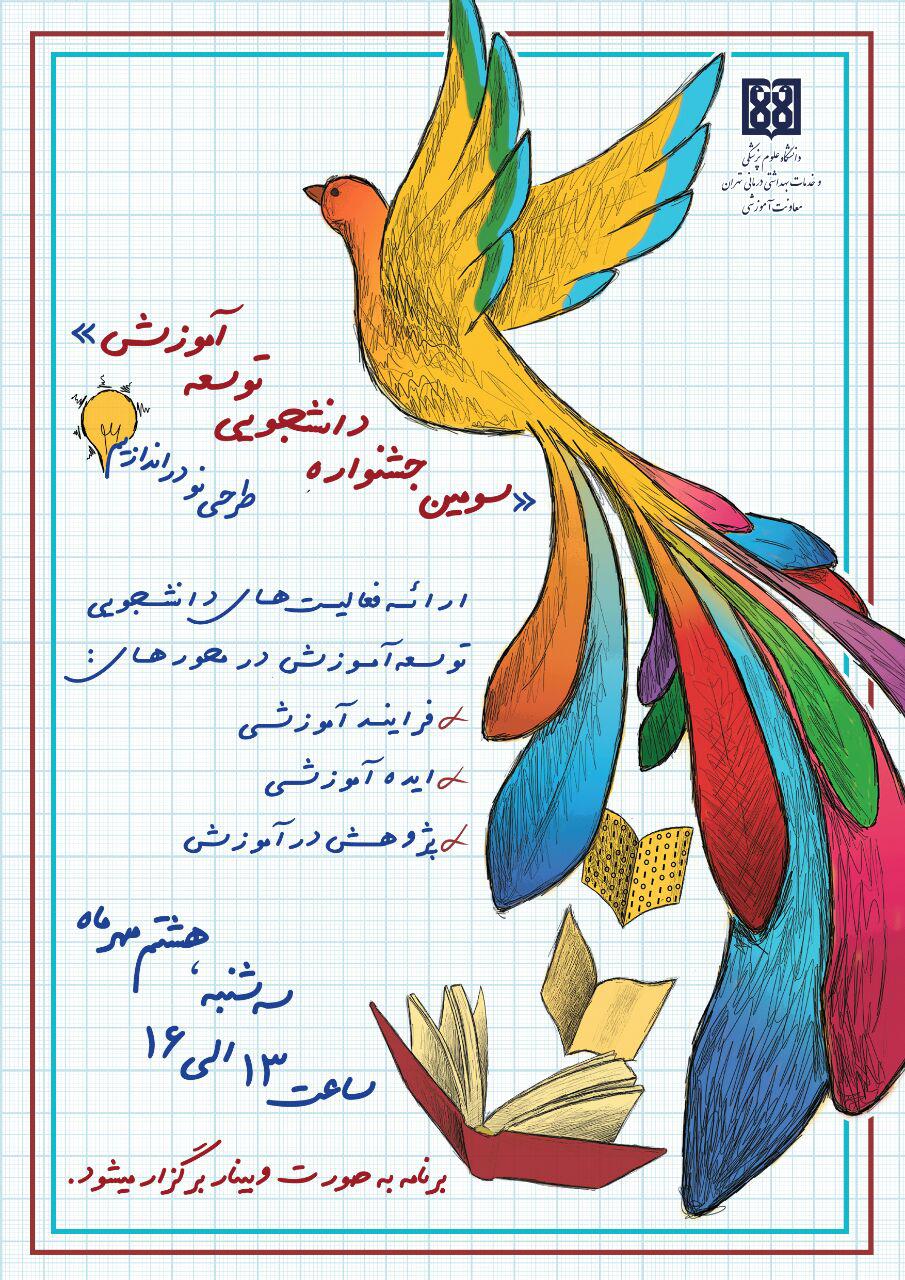 دانشگاه علوم پزشکی
و خدمات بهداشتی درمانی تهران
معاونت آموزشی
«سومین
جشنواره
دانشجویی
توسعه
آموزشی»
طرحی نو دراندازیم
ارائه فعالیت‌های دانشجویی
توسعه آموزش در محورهای:
فرایند آموزشی
ایده آموزشی
پژوهش در آموزش
هشتم مهرماه
سه‌شنبه،
ساعت ۱۳ الی ۱۶
برنامه به صورت وبینار برگزار میشود.